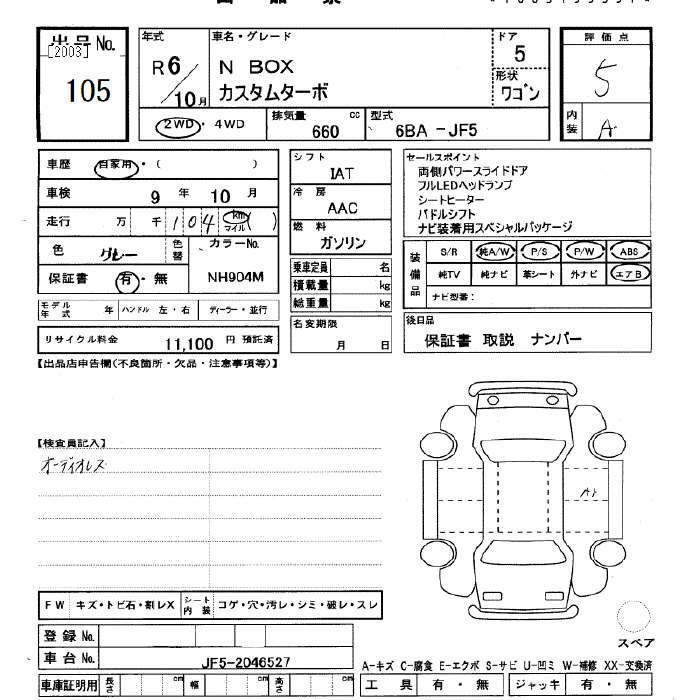 出品No.
[2003]
105
年式
R6/10月
車名・グレード
N BOX
カスタムターボ
ドア
5
形状
ワゴン
評価点
5
内装
A
2WD・4WD
排気量 660 cc
型式 6BA -JF5
車歴 自家用・( )
車検 9年 10月
走行 万 千 104 km マイル ( )
色 グレー 色替 カラーNo. NH904M
保証書 有・無
モデル年式 年 ハンドル 左・右 ディーラー・並行
リサイクル料金 11,100 円 預託済
シフト
IAT
冷房
AAC
燃料
ガソリン
乗車定員 名
積載量 kg
総重量 kg
名変期限
月 日
セールスポイント
両側パワースライドドア
フルLEDヘッドランプ
シートヒーター
パドルシフト
ナビ装着用スペシャルパッケージ
装備品
S/R 純A/W P/S P/W ABS
純TV 純ナビ 革シート 外ナビ エアB
ナビ型番:
後日品
保証書 取説 ナンバー
【出品店申告欄(不良箇所・欠品・注意事項等)】
【検査員記入】
オーディオレス
A1
スペア
FW キズ・トビ石・割レX シート内装 コゲ・穴・汚レ・シミ・破レ・スレ
登録No.
車台No. JF5-2046527
車庫証明用 長さ cm 幅 cm 高さ cm
A-キズ C-腐食 E-エクボ S-サビ U-凹ミ W-補修 XX-交換済
工具 有・無 ジャッキ 有・無